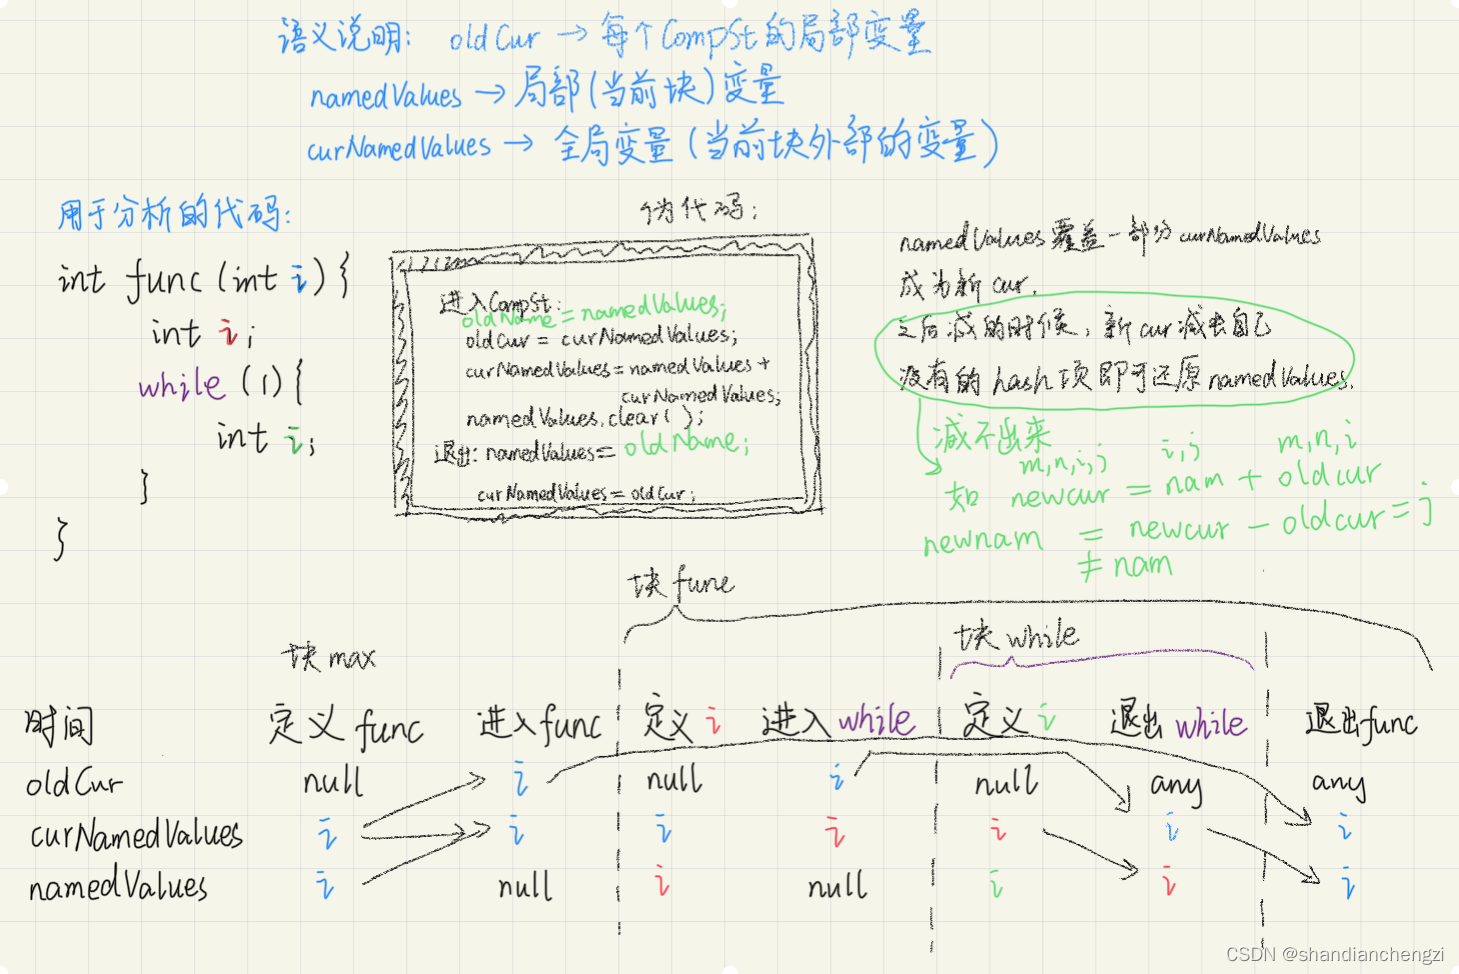 语义说明: oldCur → 每个CompSt的局部变量
namedValues → 局部(当前块)变量
curNamedValues → 全局变量(当前块外部的变量)
用于分析的代码:
int func (int i) {
int i;
while (1) {
int i;
}
}
伪代码:
进入CompSt:
oldName = namedValues;
oldCur = curNamedValues;
curNamedValues = namedValues +
curNamedValues;
namedValues.clear( );
退出: namedValues = oldName;
curNamedValues = oldCur;
namedValues覆盖一部分curNamedValues
成为新cur.
之后减的时候, 新cur减去自己
没有的hash项即可还原namedValues.
减不出来
m,n,i,j i,j m,n,i
如 newcur = nam + oldcur
newnam = newcur - oldcur = j
≠ nam
块func
块while
块max
时间 定义func 进入func 定义i 进入while 定义i 退出while 退出func
oldCur null i null i null any any
curNamedValues i i i i i i i
namedValues i null i null i i i
CSDN @shandianchengzi